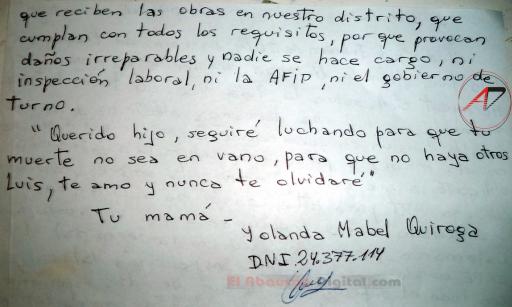 que reciben las obras en nuestro distrito, que
cumplan con todos los requisitos, por que provocan
daños irreparables y nadie se hace cargo, ni
inspección laboral, ni la AFIP, ni el gobierno de
turno.
"Querido hijo, seguiré luchando para que tu
muerte no sea en vano, para que no haya otros
Luis, te amo y nunca te olvidaré"
Tu mamá -
Yolanda Mabel Quiroga
DNI. 24.377.114
El Abaucandigital.com